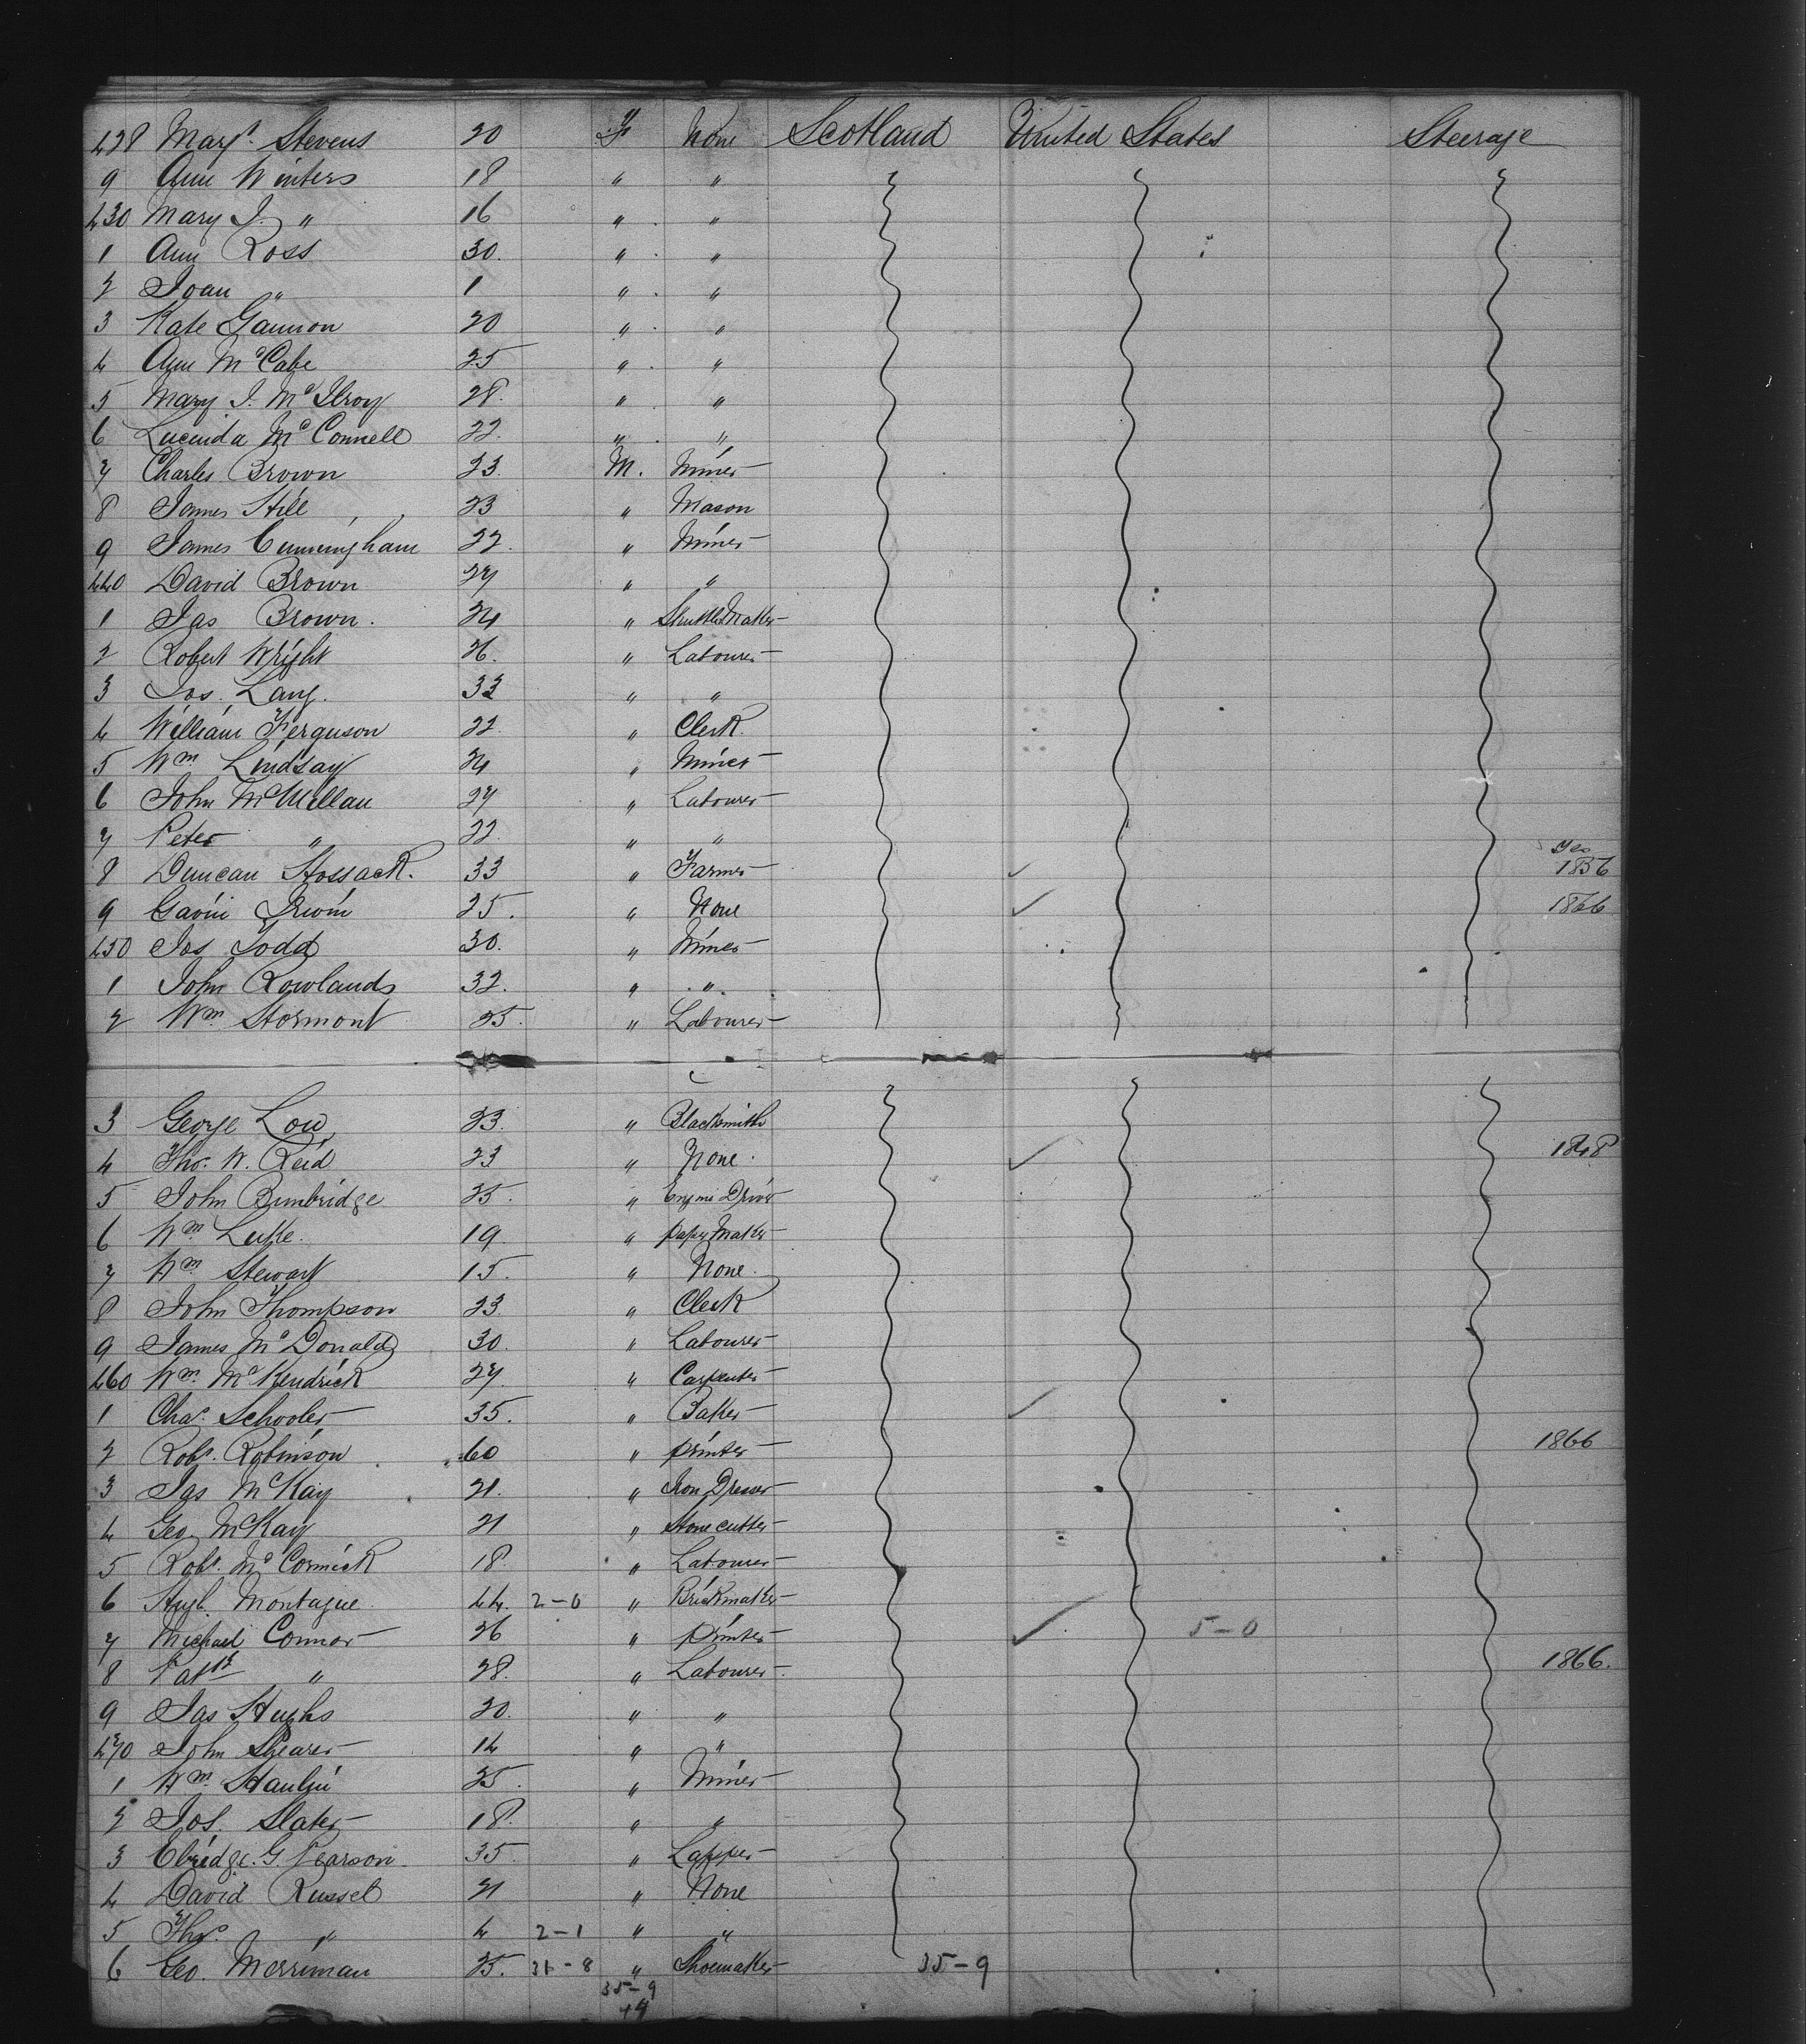 428 Margt. Stevens 20 F None Scotland United States Steerage
9 Ann Winters 18 " "
430 Mary J. " 16 " "
1 Ann Ross 30. " "
2 Joan " 1 " "
3 Kate Gannon 20 " "
4 Ann McCabe 25 " "
5 Mary J. McIlroy 28. " "
6 Lucinda McConnell 22. " "
7 Charles Brown 23. M. Miner
8 James Hill 23 " Mason
9 James Cunningham 22. " Miner
440 David Brown 27 " "
1 Jas Brown. 24 " Shuttle Maker
2 Robert Wright 26. " Labourer
3 Jos. Lang. 33 " "
4 William Ferguson 22. " Clerk.
5 Wm Lindsay 24 " Miner
6 John McMillan 27 " Labourer
7 Peter " 22. " "
8 Duncan Hossack. 33 " Farmer yes 1856
9 Gavin Irwin 25. " None 1866
450 Jos Todd 30. " Miner
1 John Rowlands 32. " "
2 Wm Stormont 25. " Labourer
3 George Low 23. " Blacksmith
4 Thos. W. Reid 23 " None. 1848
5 John Bunbridge 25. " Engine Driver
6 Wm Luke. 19. " paper Maker
7 Wm Stewart 15. " None.
8 John Thompson 23. " Clerk
9 James McDonald 30. " Labourer
460 Wm McKendrick 27. " Carpenter
1 Chas. Schooler 35. " Baker
2 Robt. Robinson 60 " printer 1866
3 Jas McKay 21. " Iron Dresser
4 Geo McKay 21 " Stone cutter
5 Robt. McCormick 18. " Labourer
6 Hugh Montague 44. 2-0 " Brickmaker
7 Michael Connor 26 " printer 5-0
8 Patk " 28. " Labourer 1866.
9 Jas Hughs 20. " "
470 John Shearer 14 " "
1 Wm 25. " Miner
2 Jos. Slater 18. " "
3 G. Pearson 35. " Lapper
4 David Russel 21 " None
5 Thos. " 4 2-1 " "
6 Geo. Merriman 25. 31-8 " Shoemaker 35-9
35-9
44